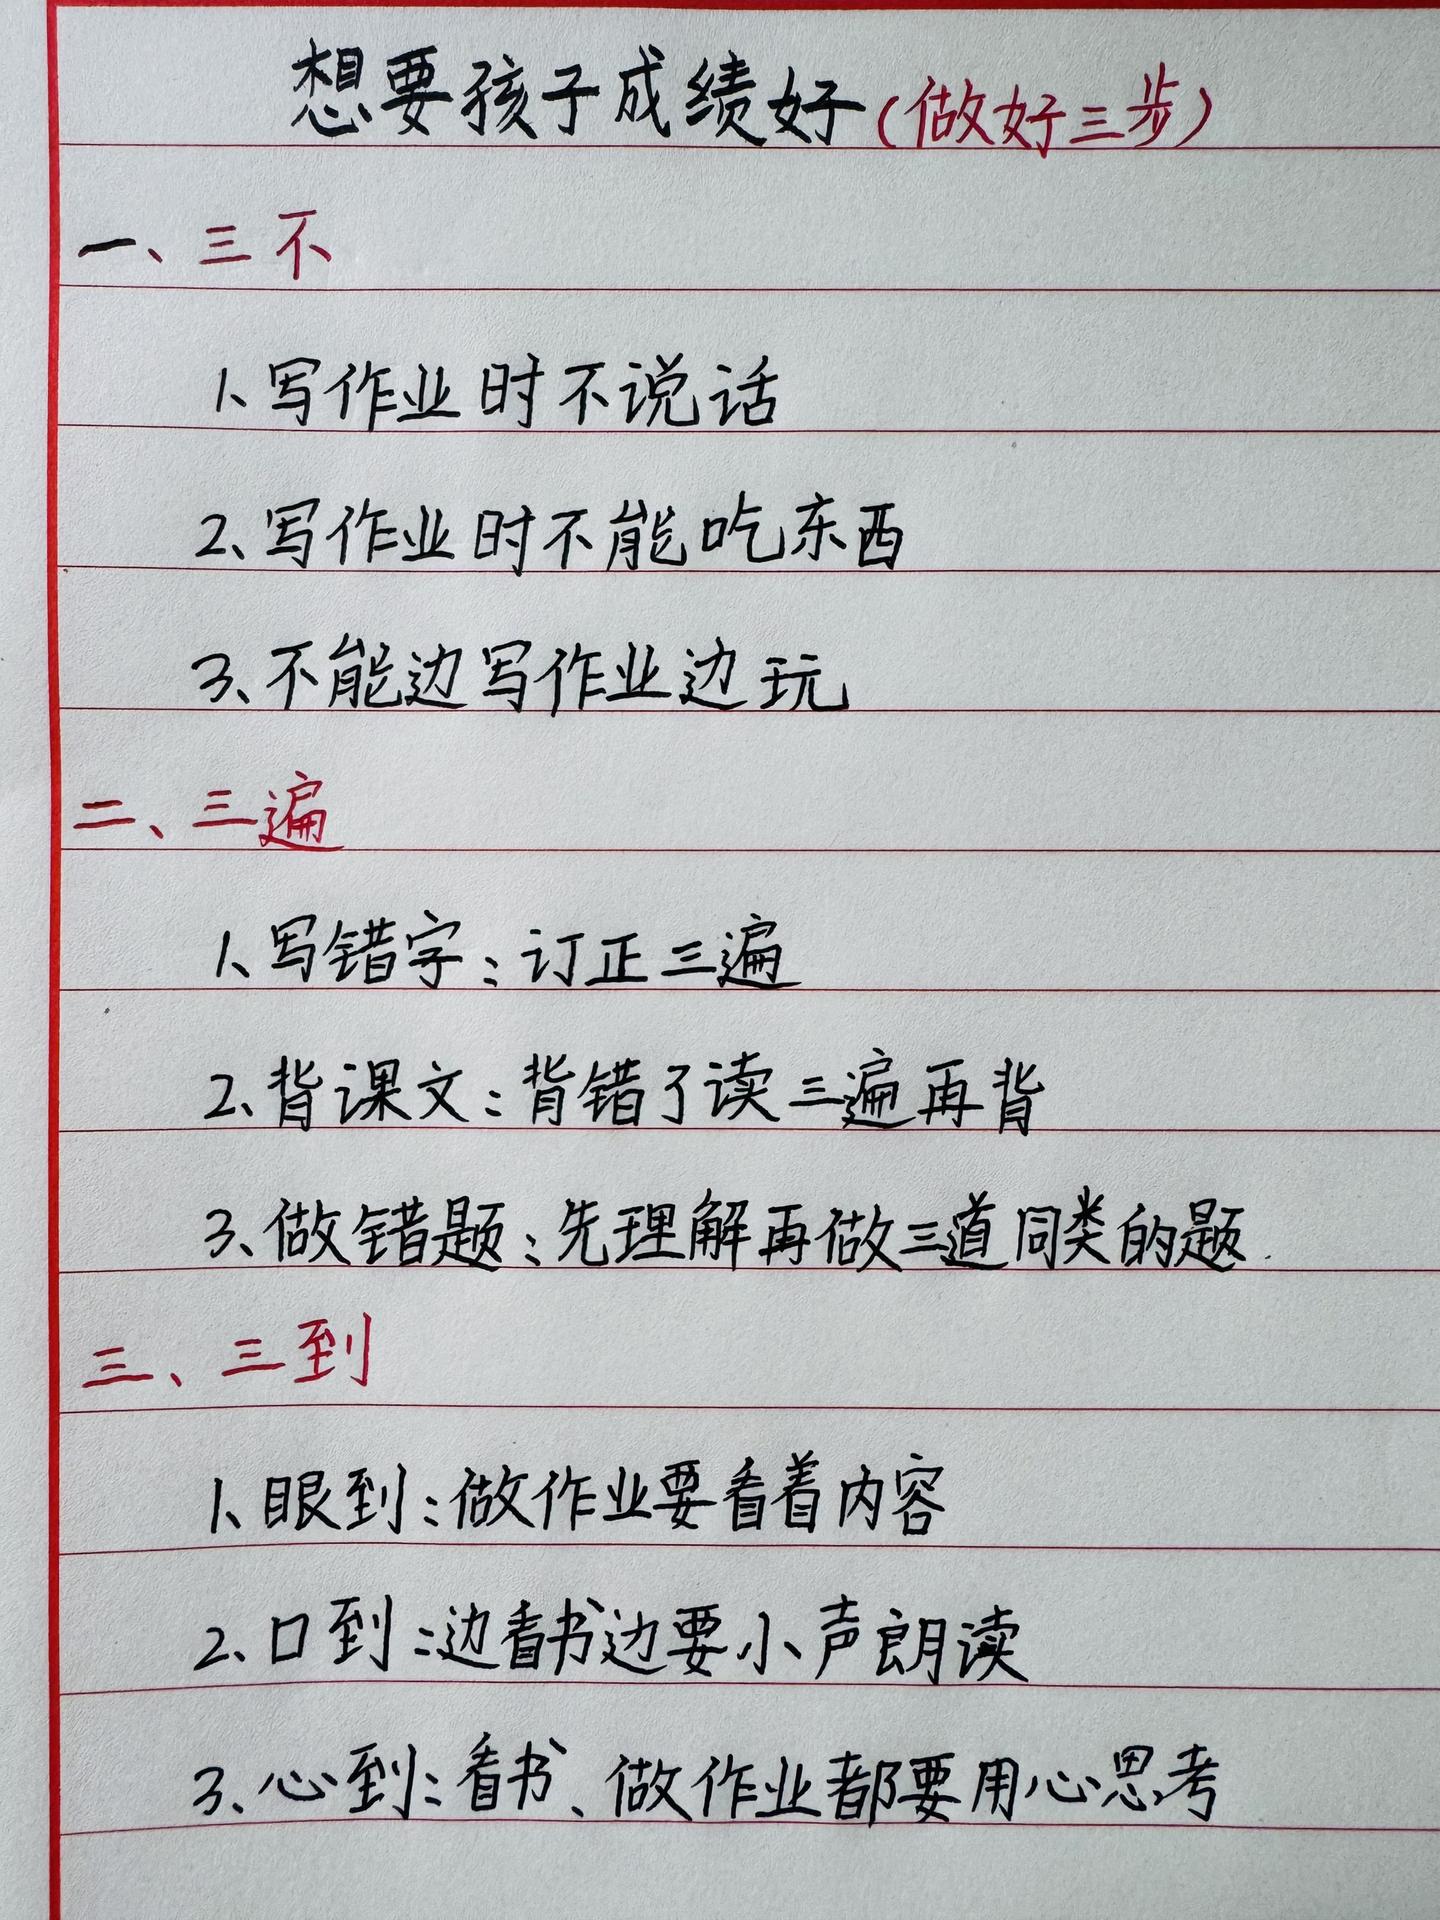 想要孩子成绩好(做好三步)
一、三不
1、写作业时不说话
2、写作业时不能吃东西
3、不能边写作业边玩
二、三遍
1、写错字:订正三遍
2、背课文:背错了读三遍再背
3、做错题:先理解再做三道同类的题.
三、三到
1、眼到:做作业要看着内容
2、口到:边看书边要小声朗读
3、心到:看书、做作业都要用心思考